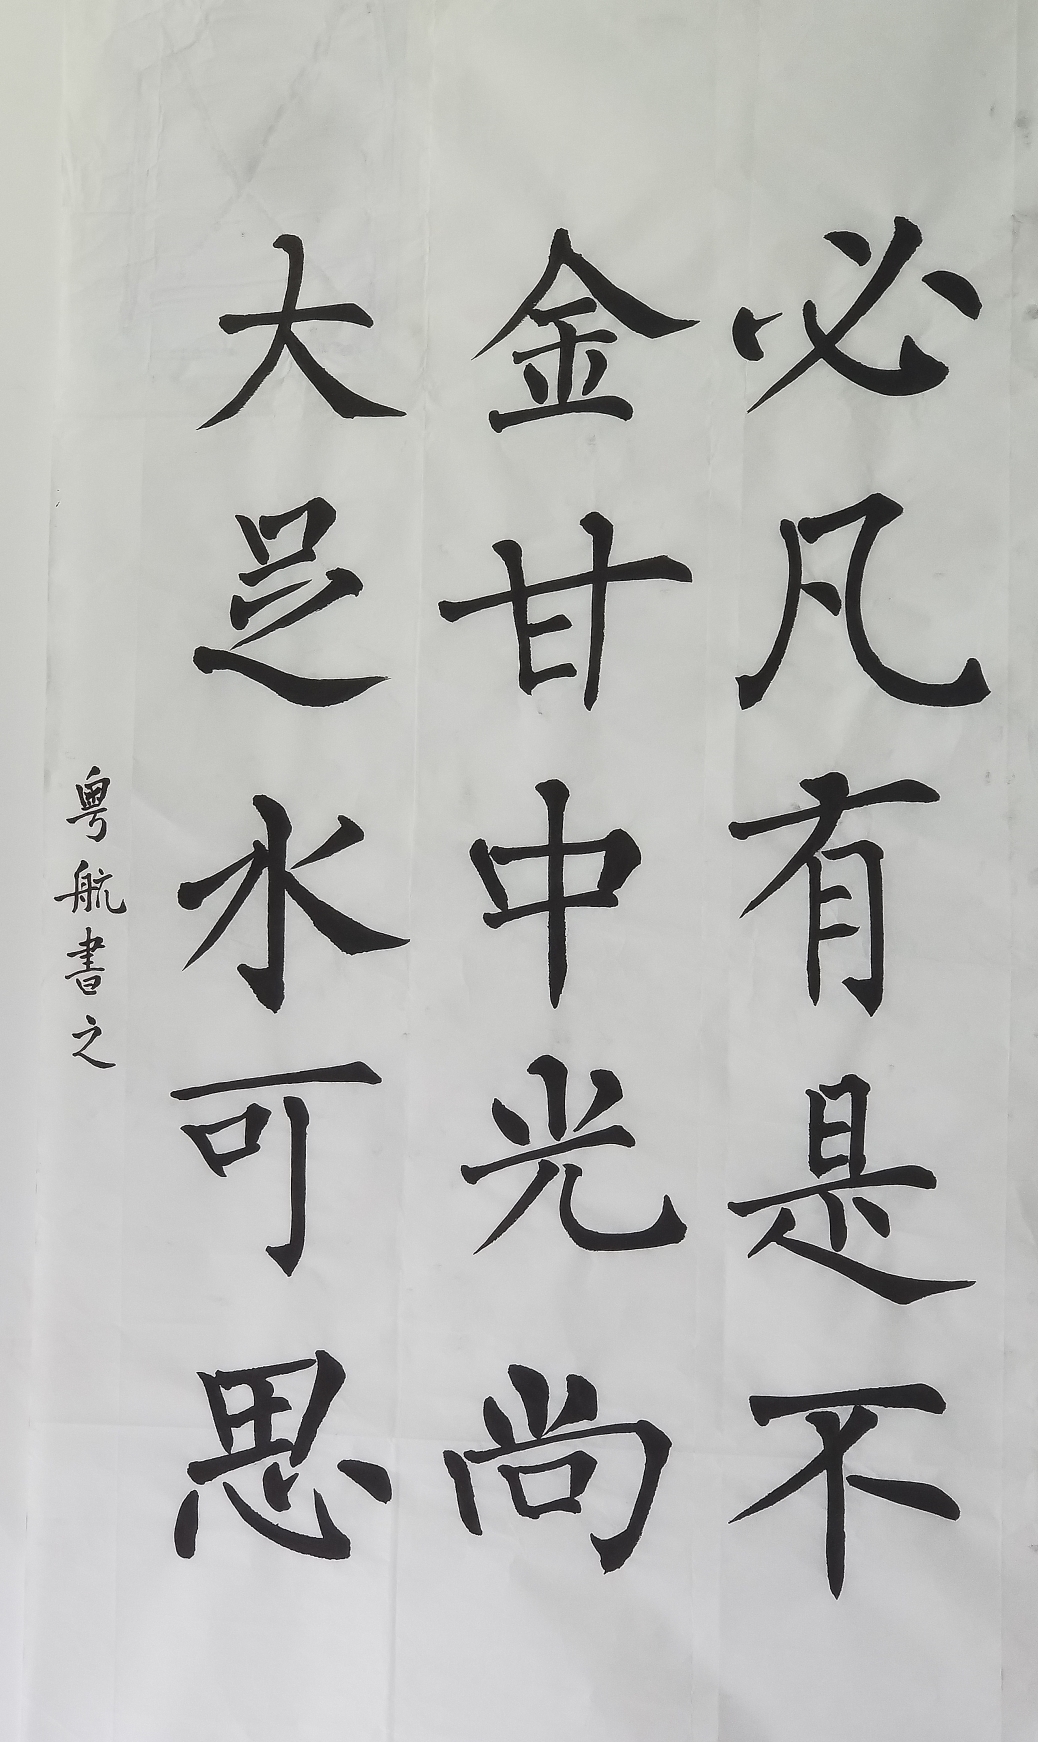 必凡有是不
金甘中光尚
大足水可思
粤航書之